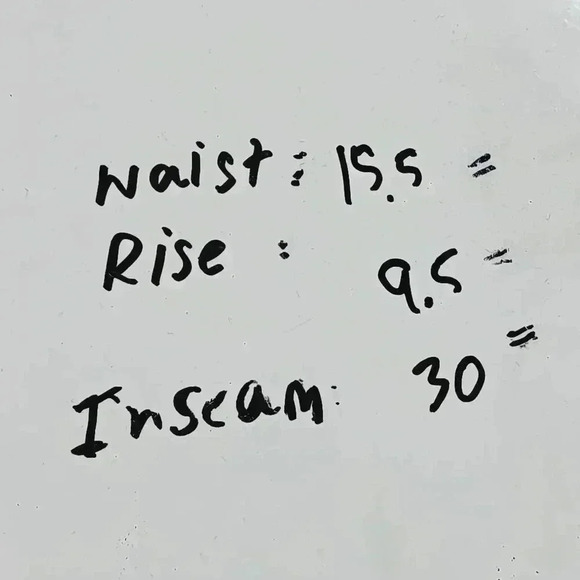 Waist: 15.5 "
Rise: 9.5 "
Inseam: 30 "